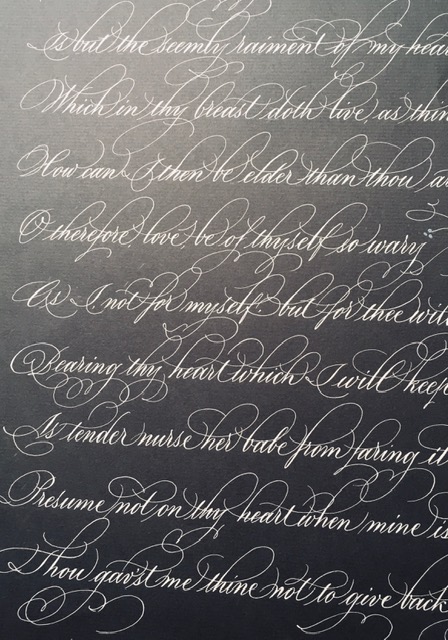 Is but the seemly raiment of my hear
Which in thy breast doth live, as thin
How can I then be elder than thou a
O therefore, love, be of thyself so wary
As I, not for myself, but for thee wil
Bearing thy heart which I will keep
As tender nurse her babe from faring il
Presume not on thy heart when mine is
Thou gav'st me thine not to give back